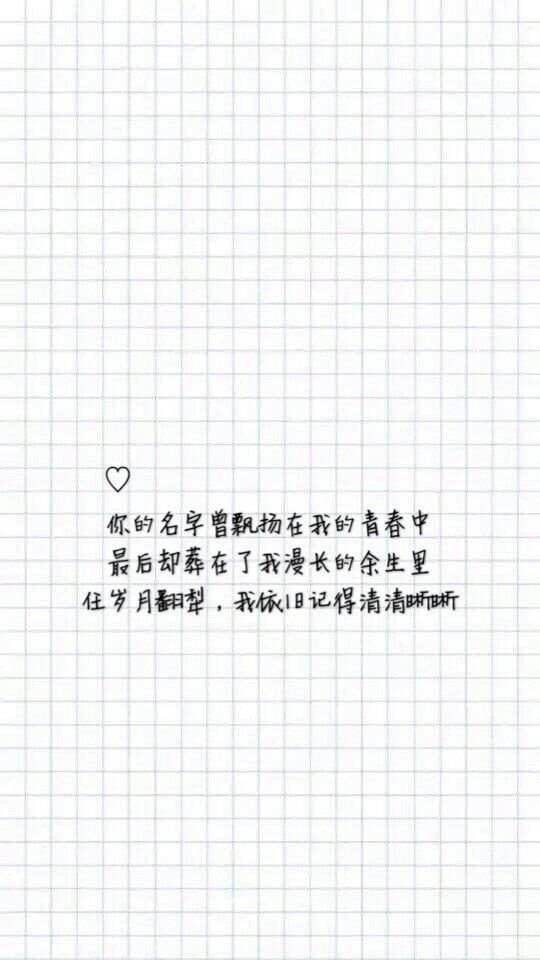 ♡
你的名字曾飘扬在我的青春中
最后却葬在了我漫长的余生里
任岁月翻犁，我依旧记得清清晰晰